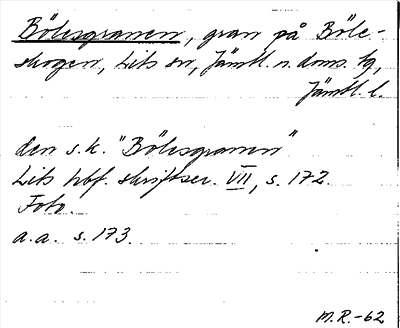 Bölesgranen, gran på Böle-
skogen, Lits sn, Jämtl. n. doms. tg,
Jämtl. l.
den s.k. "Bölesgranen"
Lits hbf. skriftser. VII, s. 172.
Foto.
a.a. s. 173.
M.R.-62